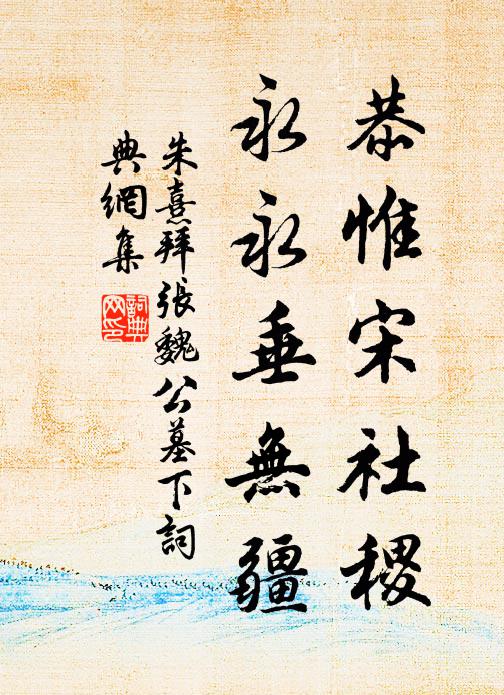 恭惟宋社稷
永永垂無疆
朱熹拜張魏公墓下詞
典網集
詞典網印